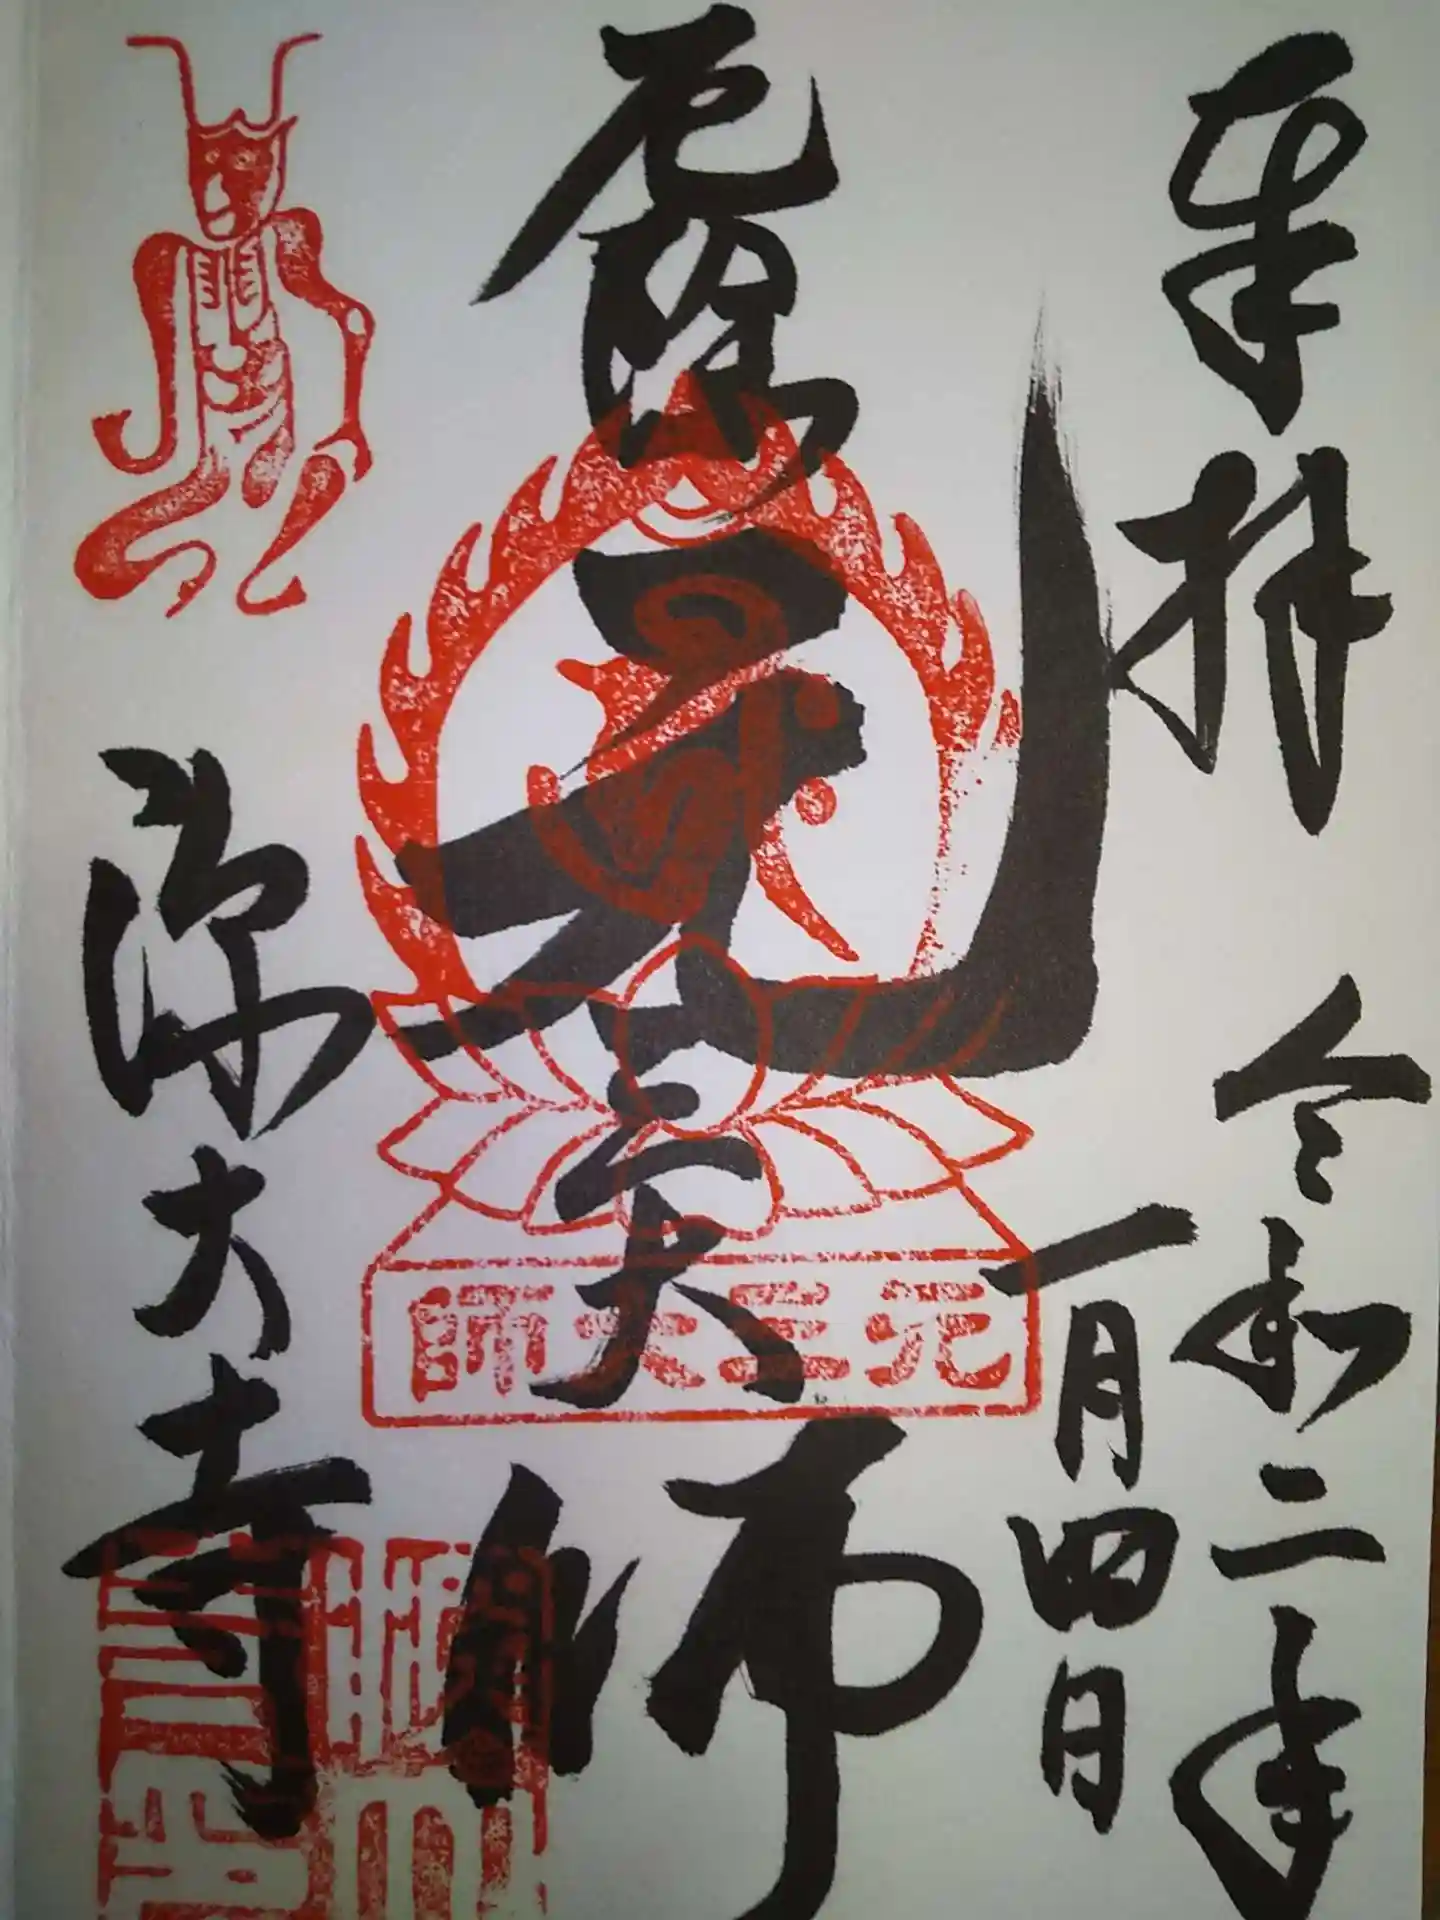 奉拝
令和二年
一月四日
厄除
元三大師
深大寺
元三大師